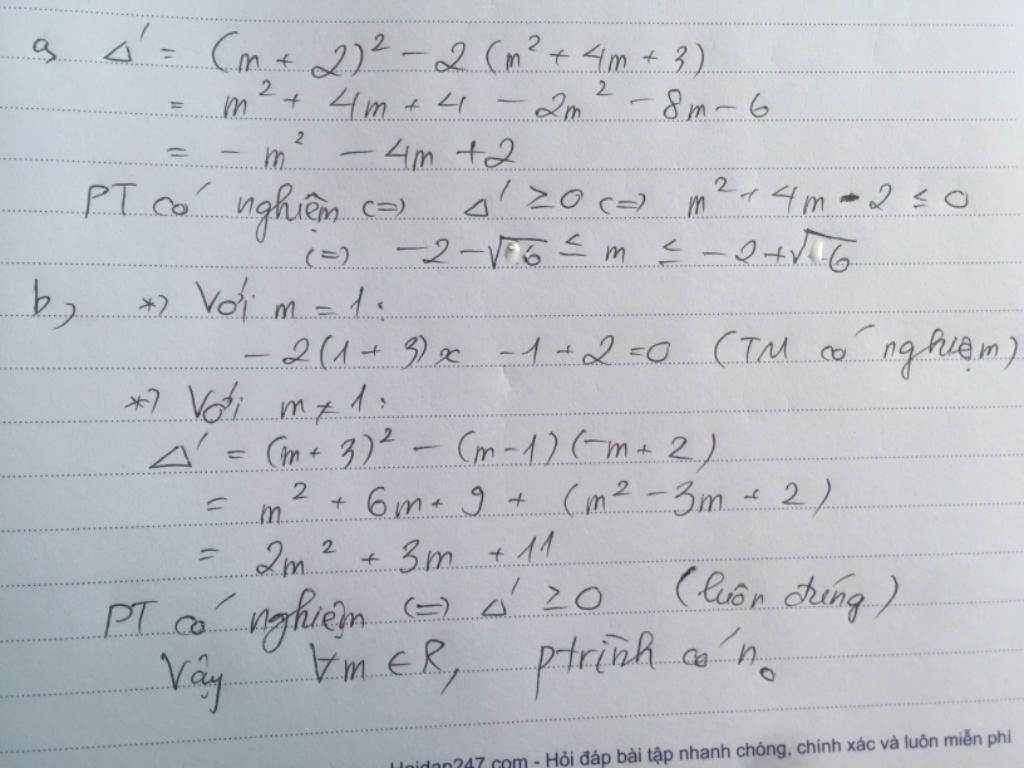 a, Δ' = (m + 2)² - 2 (m² + 4m + 3)
= m² + 4m + 4 - 2m² - 8m - 6
= - m² - 4m + 2
PT có nghiệm <=> Δ' ≥ 0 <=> m² + 4m - 2 ≤ 0
<=> -2 - √6 ≤ m ≤ -2 + √6
b, *) Với m = 1:
- 2(1 + 3)x - 1 + 2 = 0 (TM có nghiệm)
*) Với m ≠ 1:
Δ' = (m + 3)² - (m - 1)(-m + 2)
= m² + 6m + 9 + (m² - 3m + 2)
= 2m² + 3m + 11
PT có nghiệm <=> Δ' ≥ 0 (luôn đúng)
Vậy ∀m ∈ R, ptrình có n₀
Hoidap247.com - Hỏi đáp bài tập nhanh chóng, chính xác và luôn miễn phí